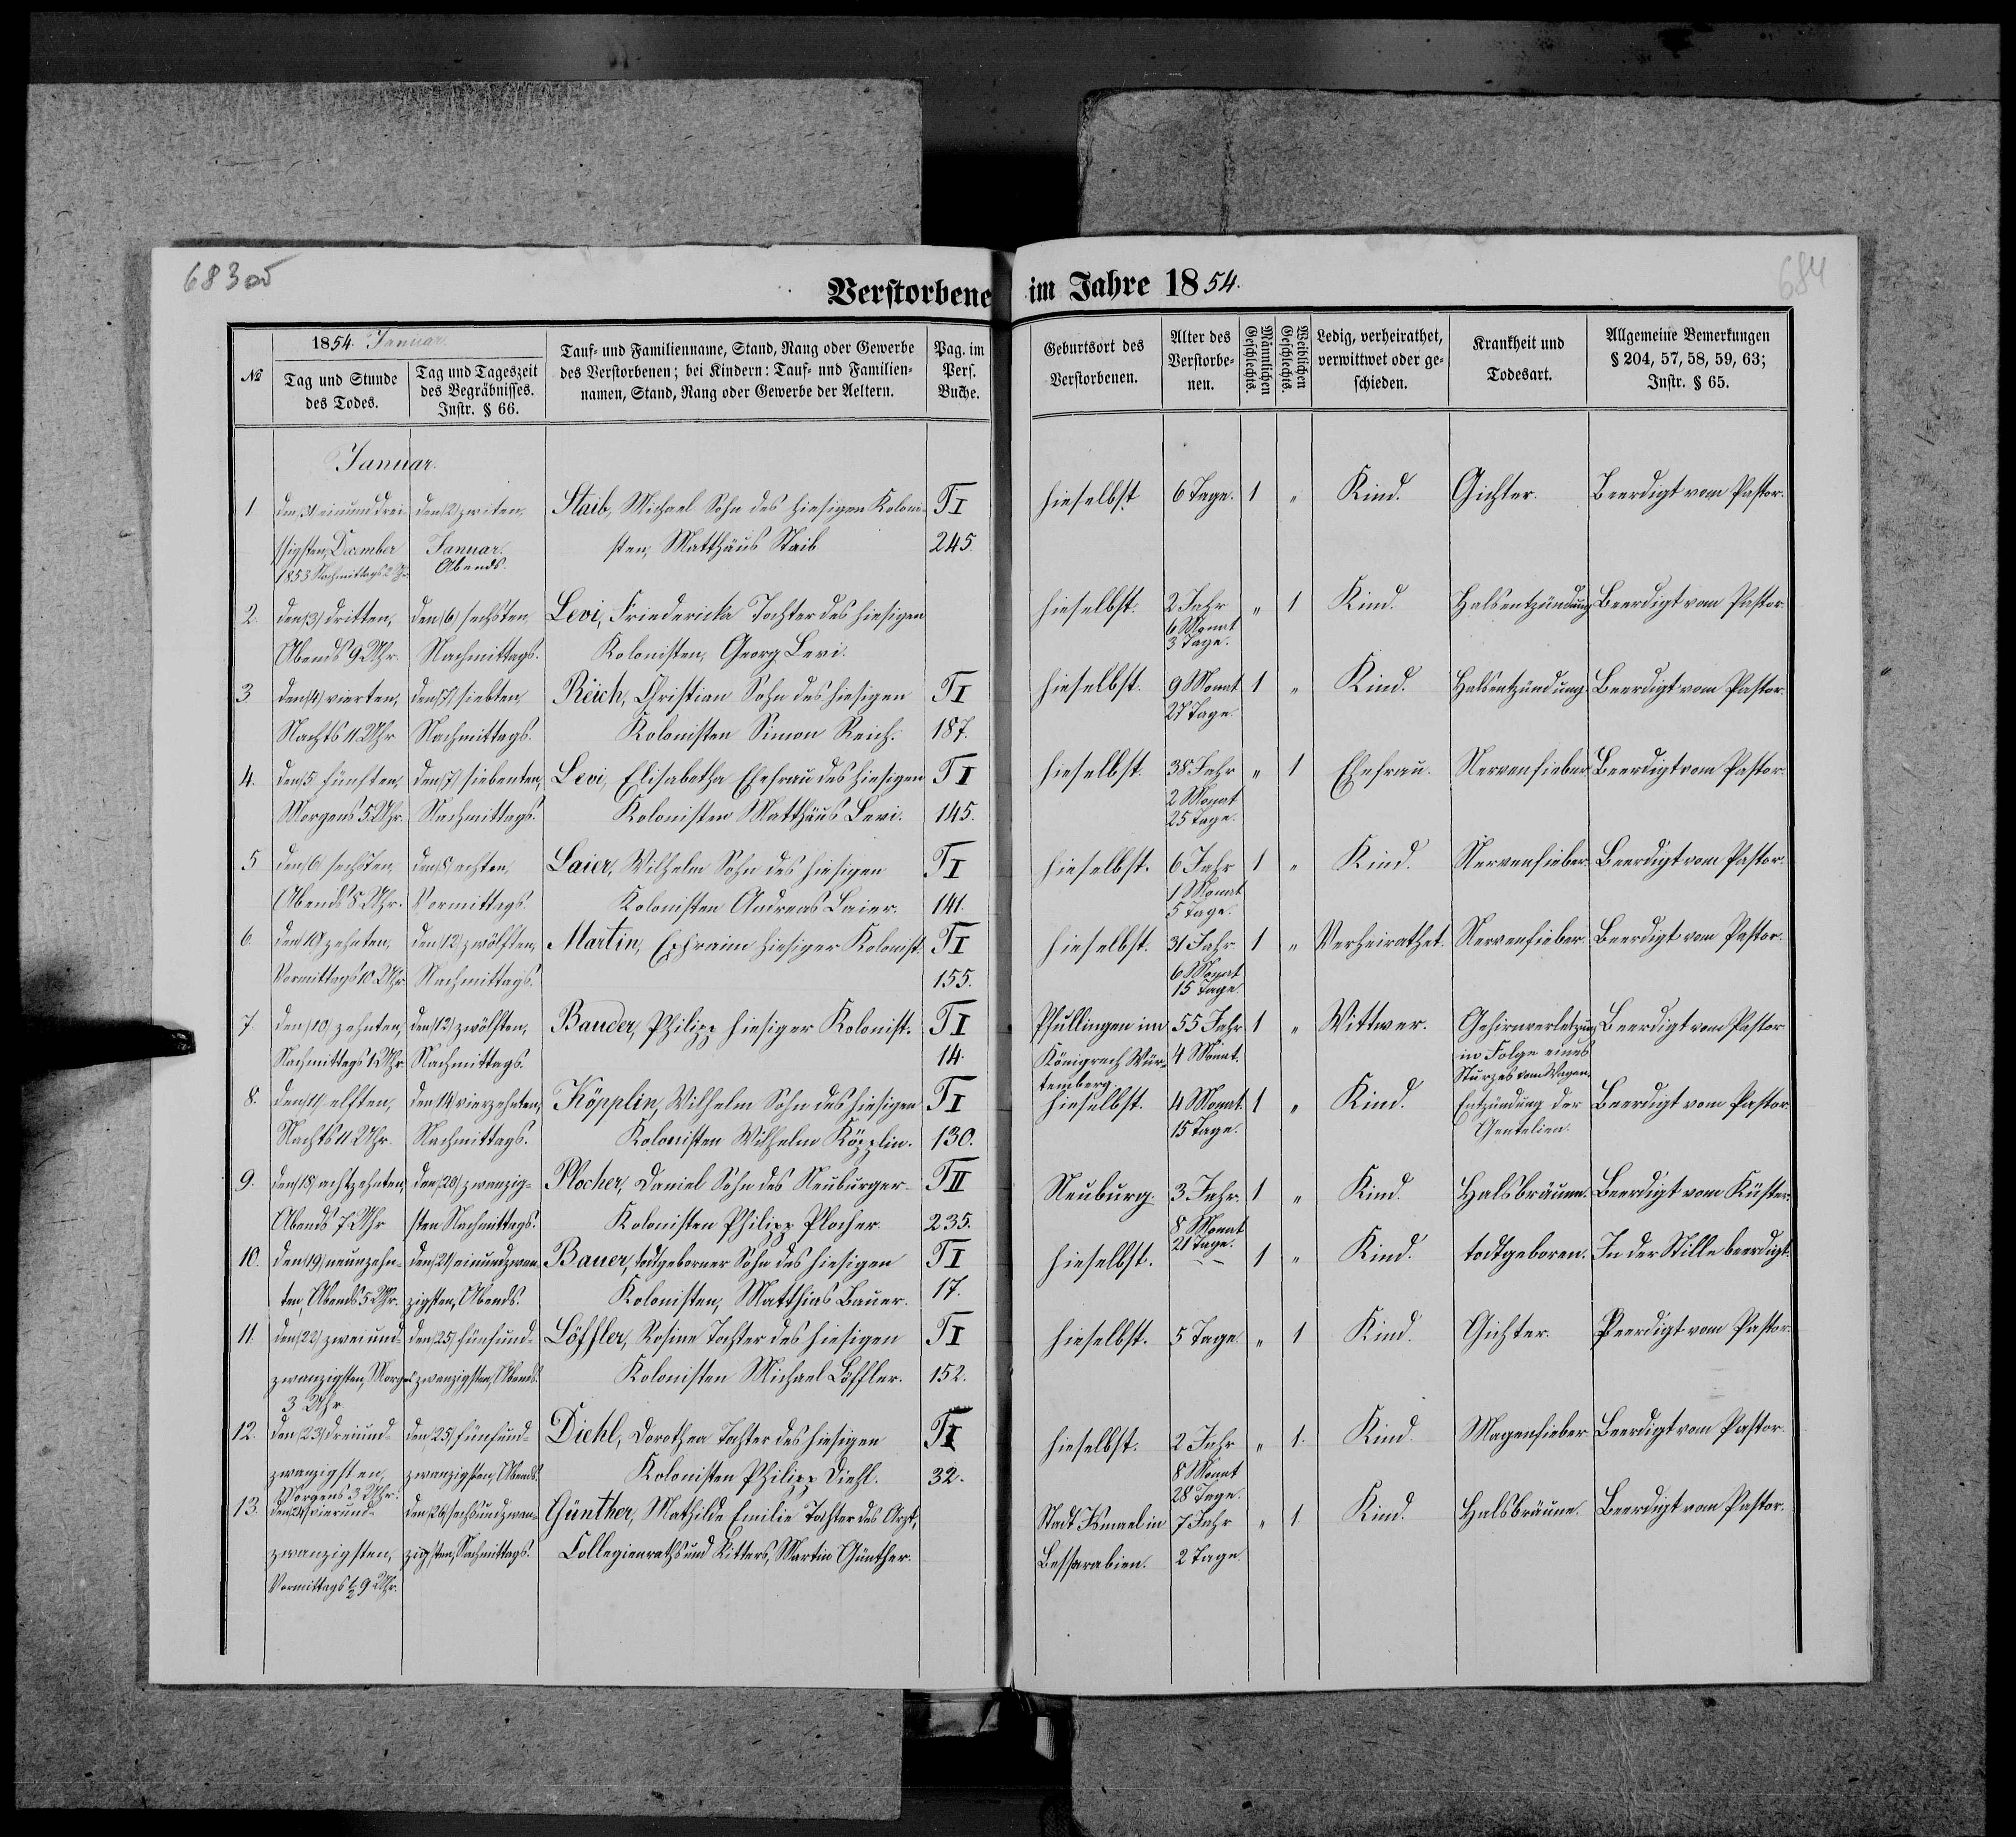 683 об
684
Verstorbene im Jahre 1854.
1854. Januar.
№
Tag und Stunde
des Todes.
Tag und Tageszeit
des Begräbnisses.
Instr. § 66.
Tauf- und Familienname, Stand, Rang oder Gewerbe
des Verstorbenen; bei Kindern: Tauf- und Familien-
namen, Stand, Rang oder Gewerbe der Aeltern.
Pag. im
Pers.
Buche.
Geburtsort des
Verstorbenen.
Alter des
Verstorbe-
nen.
Männlichen
Geschlechts.
Weiblichen
Geschlechts.
Ledig, verheirathet,
verwittwet oder ge-
schieden.
Krankheit und
Todesart.
Allgemeine Bemerkungen
§ 204, 57, 58, 59, 63;
Instr. § 65.
Januar.
1 den 31 einunddrei- den (2) zweiten, Staib, Michael Sohn des hiesigen Koloni- T I hieselbst 6 Tage. 1 " Kind. Gichter. Beerdigt vom Pastor.
ssigsten, December Januar. sten, Matthäus Staib 245.
1853 Nachmittags 2 Uhr Abends.
2. den (3) dritten, den (6) sechsten, Levi, Friedericka Tochter des hiesigen hieselbst. 2 Jahr " 1 Kind. Halsentzündung Beerdigt vom Pastor.
Abends 9 Uhr. Nachmittags. Kolonisten, Georg Levi. 6 Monat
3 Tage.
3 den (4) vierten, den (7) siebten, Reich, Christian Sohn des hiesigen T I hieselbst. 9 Monat 1 " Kind. Halsentzündung. Beerdigt vom Pastor.
Nachts 11 Uhr Nachmittags. Kolonisten Simon Reich. 187. 27 Tage.
4. den (5) fünften, den (7) siebenten, Levi, Elisabetha Ehefrau des hiesigen T I hieselbst. 38 Jahr " 1 Ehefrau. Nervenfieber. Beerdigt vom Pastor.
Morgens 5 Uhr. Nachmittags. Kolonisten Matthäus Levi. 145. 2 Monat
25 Tage.
5 den (6) sechsten, den (8) achten, Laier, Wilhelm Sohn des hiesigen T I hieselbst. 6 Jahr 1 " Kind. Nervenfieber. Beerdigt vom Pastor.
Abends 8 Uhr. Vormittags Kolonisten Andreas Laier. 141. 1 Monat
5 Tage.
6. den (10) zehnten, den (12) zwölften, Martin, Ephraim hiesiger Kolonist. T I hieselbst. 31 Jahr 1 " Verheirathet. Nervenfieber. Beerdigt vom Pastor.
Vormittags 10 Uhr. Nachmittags. 155. 6 Monat
15 Tage.
7. den (10) zehnten, den (12) zwölften, Bauder, Philipp hiesiger Kolonist. T I Pfullingen im 55 Jahr 1 " Wittwer. Gehirnverletzung Beerdigt vom Pastor
Nachmittags 1 Uhr. Nachmittags. 14. Königreich Wür- 4 Monat. in Folge eines
temberg. Sturzes vom Wagen.
8. den (11) elften, den (14) vierzehnten, Köpplin, Wilhelm Sohn des hiesigen T I hieselbst. 4 Monat. 1 " Kind. Entzündung der Beerdigt vom Pastor.
Nachts 11 Uhr. Nachmittags. Kolonisten Wilhelm Köpplin. 130. 15 Tage.
9. den (18) achtzehnten, den (20) zwanzig- Plocher, Daniel Sohn des Neuburger- T II Neuburg. 3 Jahr. 1 " Kind. Halsbräune. Beerdigt vom Küster.
Abends 7 Uhr sten Nachmittags. Kolonisten Philipp Plocher. 235. 8 Monat
21 Tage.
10. den (19) neunzehn- den (21) einundzwan- Bauer, todtgeborner Sohn des hiesigen T I hieselbst. 1 " Kind. todtgeboren. In der Stille beerdigt.
ten, Abends 5 Uhr. zigsten, Abends. Kolonisten, Matthias Bauer. 17.
11. den (22) zweiund- den (25) fünfund- Löffler, Rosine Tochter des hiesigen T I hieselbst. 5 Tage. " 1 Kind. Gichter. Beerdigt vom Pastor.
zwanzigsten, Morgens zwanzigsten, Abends. Kolonisten Michael Löffler. 152.
3 Uhr
12. den (23) dreiund- den (25) fünfund- Diehl, Dorothea Tochter des hiesigen T I hieselbst. 2 Jahr " 1. Kind. Magenfieber Beerdigt vom Pastor.
zwanzigsten, zwanzigsten, Abends. Kolonisten Philipp Diehl. 32. 8 Monat
Morgens 3 Uhr. 28 Tage.
13. den (24) vierund- den (26) sechsundzwan- Günther, Mathilde Emilie Tochter des Arzt, Stadt Ismael in 7 Jahr " 1. Kind. Halsbräune. Beerdigt vom Pastor.
zwanzigsten, zigsten, Nachmittags. Collegienraths und Ritters, Martin Günther. Bessarabien. 2 Tage.
Vormittags ½ 9 Uhr.